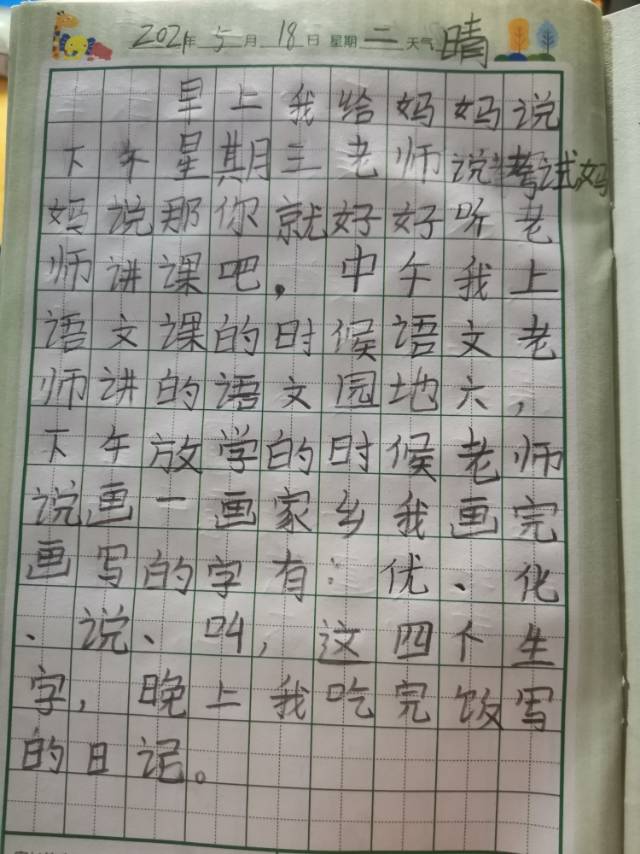 2021年5月18日 星期二 天气晴
早上我给妈妈说
下午星期三老师说考试妈
妈说那你就好好听老
师讲课吧，中午我上
语文课的时候语文老
师讲的语文园地六，
下午放学的时候老师
说画一画家乡我画完
画写的字有：优、化
、说、叫，这四个生
字，晚上我吃完饭写
的日记。